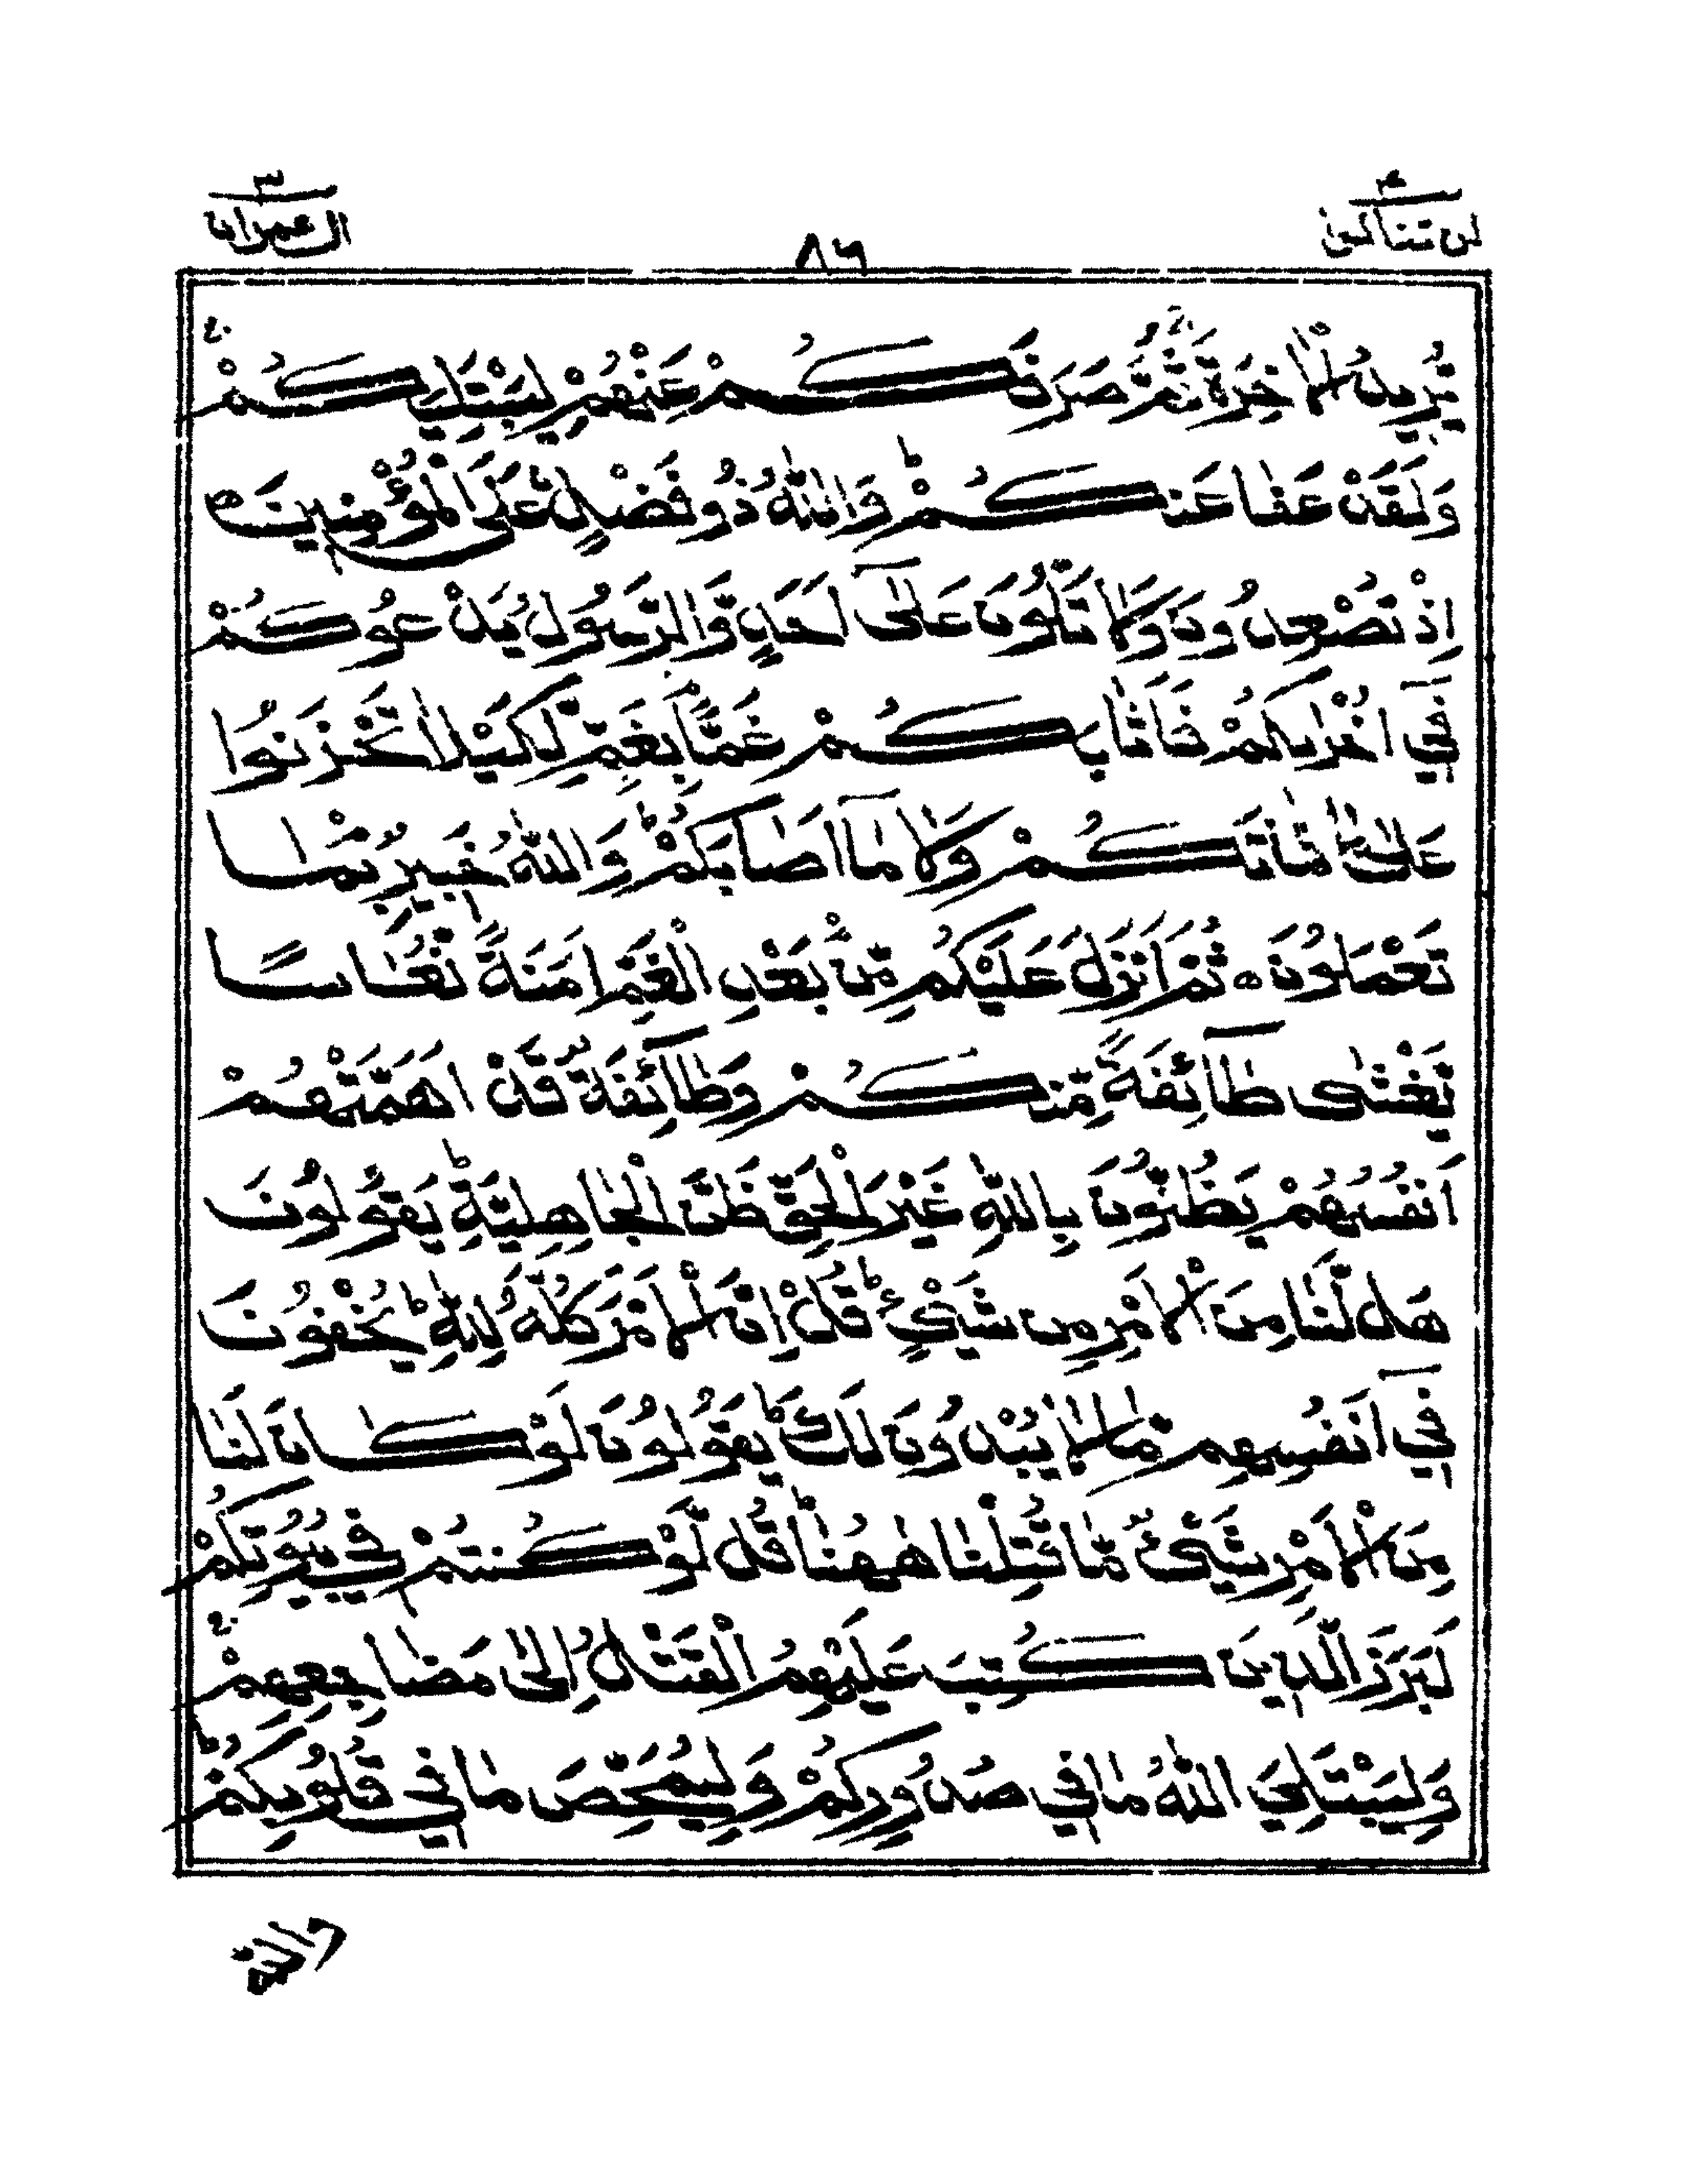 لن تنالوا ۴
۸۶
اٰل عمران ۳
يُّرِيْدُ الْاٰخِرَةَ ثُمَّ صَرَفَكُمْ عَنْهُمْ لِيَبْتَلِيَكُمْ ۚ
وَلَقَدْ عَفَا عَنْكُمْ ؕ وَاللّٰهُ ذُوْ فَضْلٍ عَلَى الْمُؤْمِنِيْنَ ۝
اِذْ تُصْعِدُوْنَ وَلَا تَلْوٗنَ عَلٰٓى اَحَدٍ وَّالرَّسُوْلُ يَدْعُوْكُمْ
فِيْٓ اُخْرٰىكُمْ فَاَثَابَكُمْ غَمًّۢا بِغَمٍّ لِّكَيْلَا تَحْزَنُوْا
عَلٰى مَا فَاتَكُمْ وَلَا مَآ اَصَابَكُمْ ؕ وَاللّٰهُ خَبِيْرٌۢ بِمَا
تَعْمَلُوْنَ ۝ ثُمَّ اَنْزَلَ عَلَيْكُمْ مِّنْۢ بَعْدِ الْغَمِّ اَمَنَةً نُّعَاسًا
يَّغْشٰى طَآئِفَةً مِّنْكُمْ وَطَآئِفَةٌ قَدْ اَهَمَّتْهُمْ
اَنْفُسُهُمْ يَظُنُّوْنَ بِاللّٰهِ غَيْرَ الْحَقِّ ظَنَّ الْجَاهِلِيَّةِ ؕ يَقُوْلُوْنَ
هَلْ لَّنَا مِنَ الْاَمْرِ مِنْ شَيْءٍ ؕ قُلْ اِنَّ الْاَمْرَ كُلَّهٗ لِلّٰهِ ؕ يُخْفُوْنَ
فِيْٓ اَنْفُسِهِمْ مَّا لَا يُبْدُوْنَ لَكَ ؕ يَقُوْلُوْنَ لَوْ كَانَ لَنَا
مِنَ الْاَمْرِ شَيْءٌ مَّا قُتِلْنَا هٰهُنَا ؕ قُلْ لَّوْ كُنْتُمْ فِيْ بُيُوْتِكُمْ
لَبَرَزَ الَّذِيْنَ كُتِبَ عَلَيْهِمُ الْقَتْلُ اِلٰى مَضَاجِعِهِمْ ۚ
وَلِيَبْتَلِيَ اللّٰهُ مَا فِيْ صُدُوْرِكُمْ وَلِيُمَحِّصَ مَا فِيْ قُلُوْبِكُمْ ؕ
واللّٰه